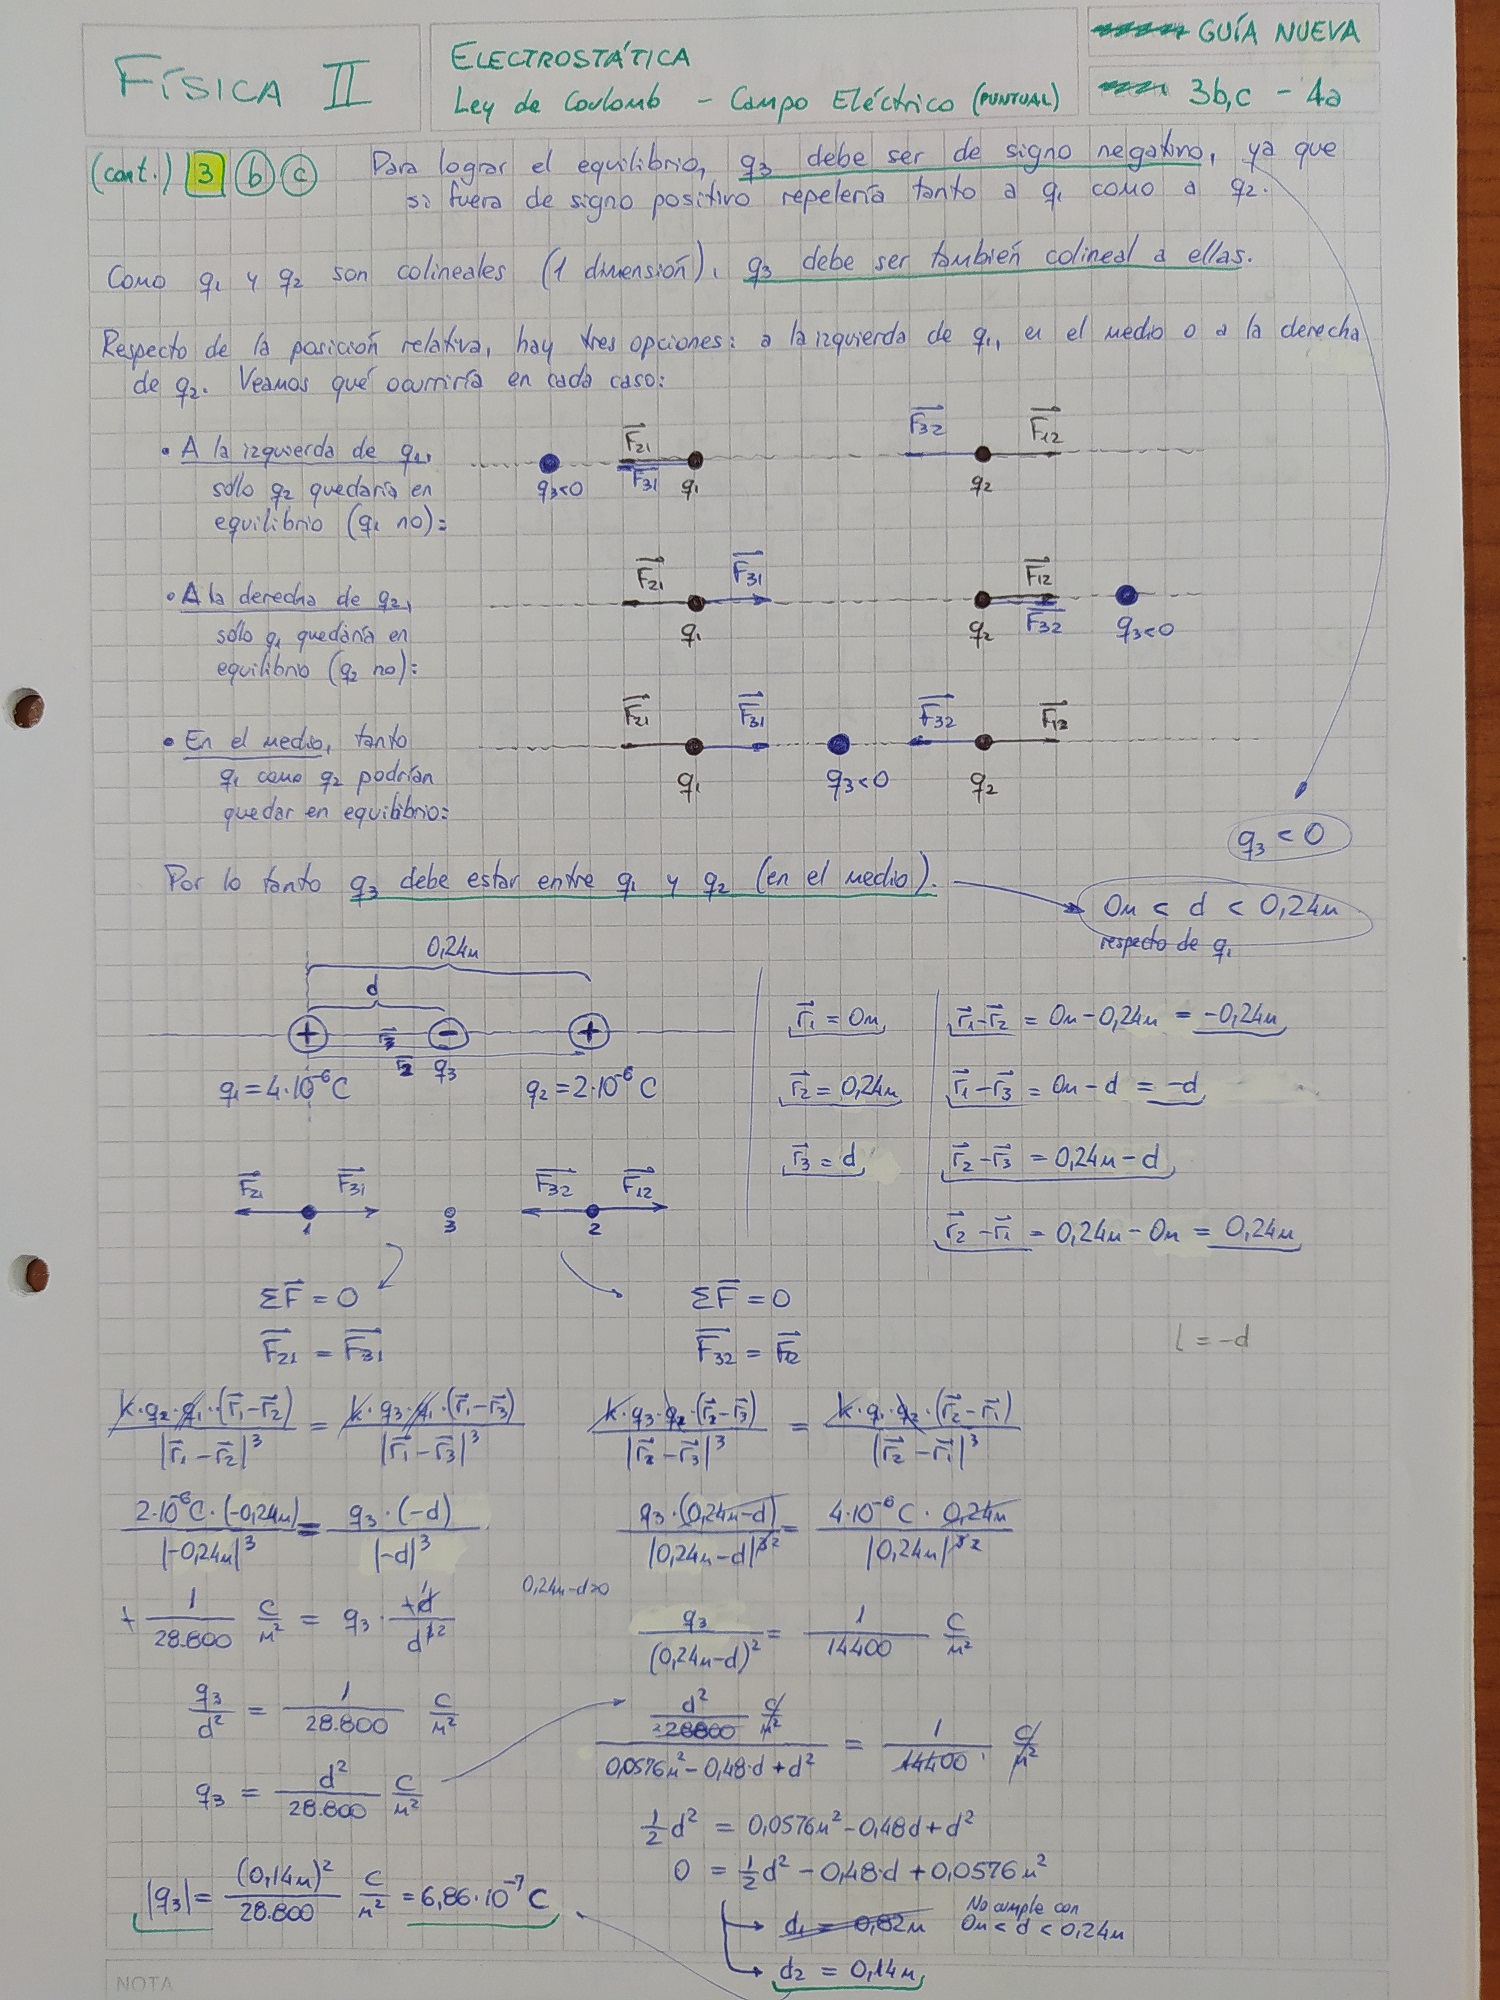 FÍSICA II
ELECTROSTÁTICA
Ley de Coulomb - Campo Eléctrico (PUNTUAL)
GUÍA NUEVA
3b,c - 4a
(cont.) 3 b c Para lograr el equilibrio, q3 debe ser de signo negativo, ya que
si fuera de signo positivo repelería tanto a q1 como a q2.
Como q1 y q2 son colineales (1 dimensión), q3 debe ser también colineal a ellas.
Respecto de la posición relativa, hay tres opciones: a la izquierda de q1, en el medio o a la derecha
de q2. Veamos qué ocurriría en cada caso:
• A la izquierda de q1,
sólo q2 quedaría en
equilibrio (q1 no):
F21 F32 F12
q3<0 F31 q1 q2
• A la derecha de q2,
sólo q1 quedaría en
equilibrio (q2 no):
F21 F31 F12
q1 q2 F32 q3<0
• En el medio, tanto
q1 como q2 podrían
quedar en equilibrio:
F21 F31 F32 F12
q1 q3<0 q2
q3 < 0
Por lo tanto q3 debe estar entre q1 y q2 (en el medio).
0m < d < 0,24m
respecto de q1
0,24m
d
+ - +
r3
r2 q3
q1 = 4·10⁻⁶C q2 = 2·10⁻⁶C
r1 = 0m r1-r2 = 0m-0,24m = -0,24m
r2 = 0,24m r1-r3 = 0m-d = -d
r3 = d r2-r3 = 0,24m-d
r2-r1 = 0,24m-0m = 0,24m
F21 F31 F32 F12
1 3 2
ΣF = 0 ΣF = 0
F21 = F31 F32 = F12
l = -d
k·q2·q1·(r1-r2) / |r1-r2|³ = k·q3·q1·(r1-r3) / |r1-r3|³
k·q3·q2·(r2-r3) / |r2-r3|³ = k·q1·q2·(r2-r1) / |r2-r1|³
2·10⁻⁶C·(-0,24m) / |-0,24m|³ = q3·(-d) / |-d|³
q3·(0,24m-d) / |0,24m-d|³² = 4·10⁻⁶C·0,24m / |0,24m|³²
0,24m-d>0
+ 1/28.800 C/m² = q3 · +d/d³²
q3/(0,24m-d)² = 1/14400 C/m²
q3/d² = 1/28.800 C/m²
d²/28800 C/m² / 0,0576m²-0,48·d+d² = 1/14400 C/m²
q3 = d²/28.800 C/m²
½d² = 0,0576m²-0,48d+d²
0 = ½d²-0,48·d+0,0576m²
|q3| = (0,14m)²/28.800 C/m² = 6,86·10⁻⁷C
d1 = 0,82m No cumple con
0m < d < 0,24m
d2 = 0,14m
NOTA